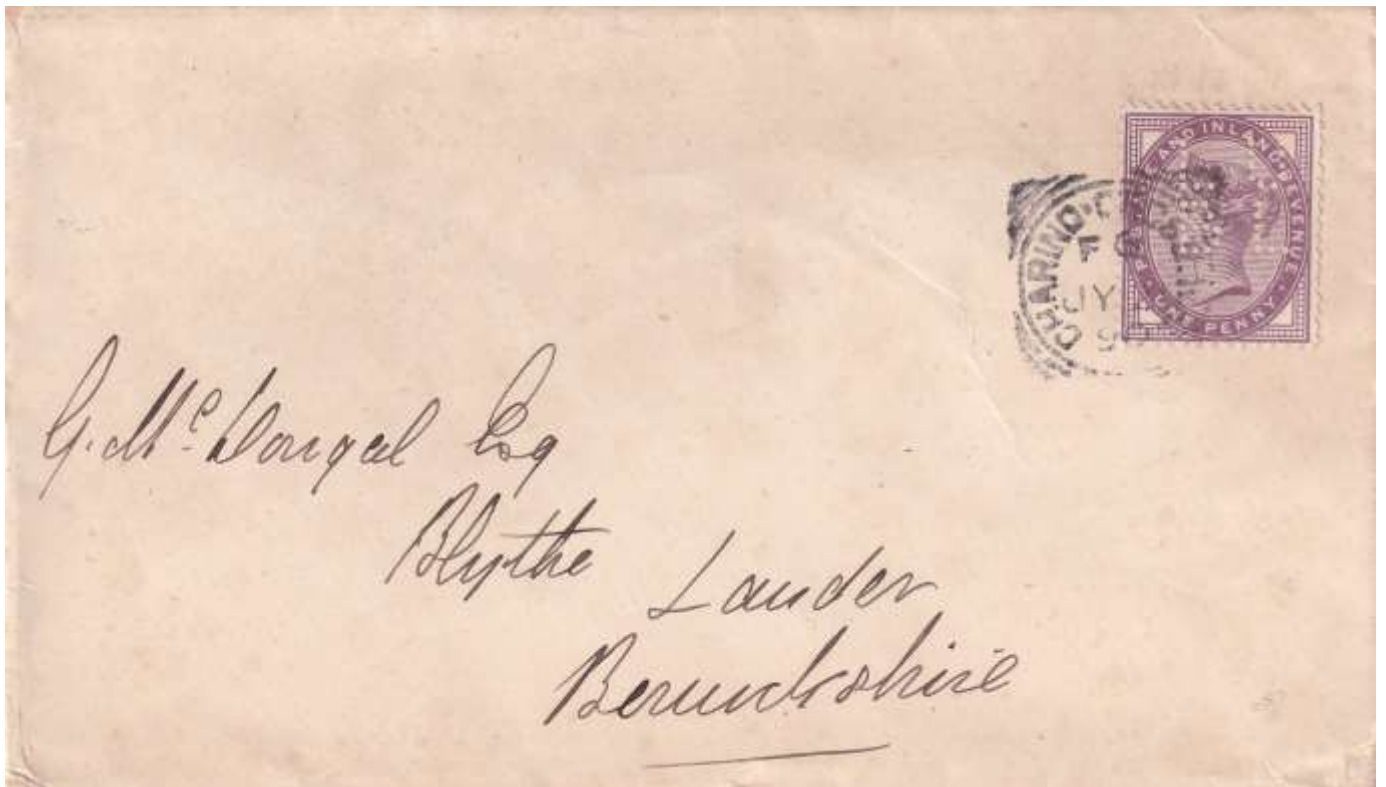 POSTAGE AND INLAND REVENUE
ONE PENNY
CHARING
JY
9
G. Mc Dougal Esq
Blythe
Lauder
Berwickshire